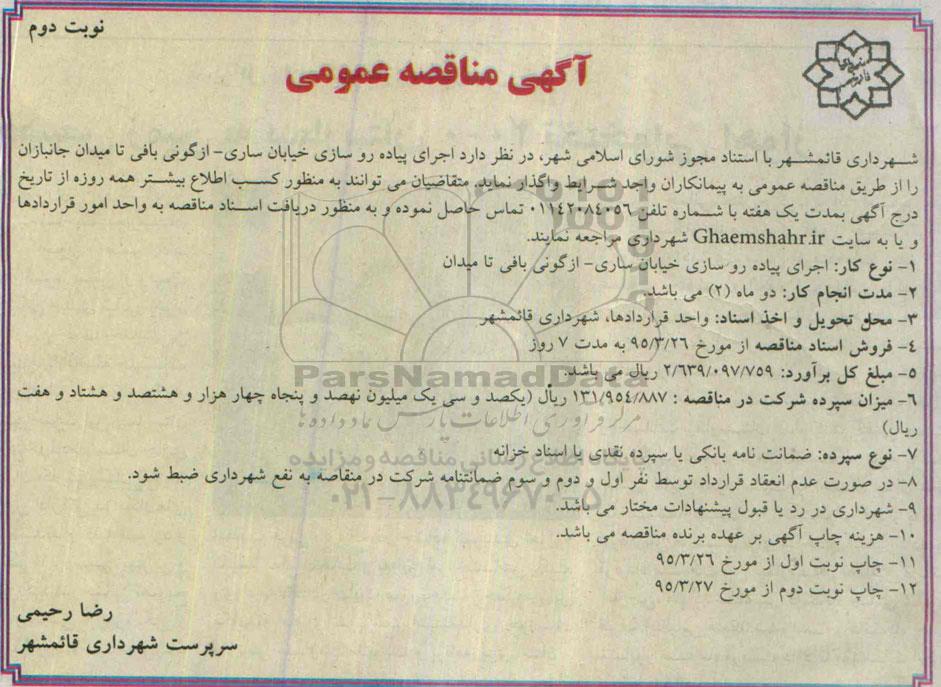 نوبت دوم
آگهی مناقصه عمومی
شهرداری قائمشهر با استناد مجوز شورای اسلامی شهر، در نظر دارد اجرای پیاده رو سازی خیابان ساری- ازگونی بافی تا میدان جانبازان
را از طریق مناقصه عمومی به پیمانکاران واجد شرایط واگذار نماید. متقاضیان می توانند به منظور کسب اطلاع بیشتر همه روزه از تاریخ
درج آگهی بمدت یک هفته با شماره تلفن ۰۱۱۴۲۰۸۴۰۵۶ تماس حاصل نموده و به منظور دریافت اسناد مناقصه به واحد امور قراردادها
و یا به سایت Ghaemshahr.ir شهرداری مراجعه نمایند.
۱- نوع کار: اجرای پیاده رو سازی خیابان ساری- ازگونی بافی تا میدان
۲- مدت انجام کار: دو ماه (۲) می باشد.
۳- محل تحویل و اخذ اسناد: واحد قراردادها، شهرداری قائمشهر
۴- فروش اسناد مناقصه از مورخ ۹۵/۳/۲۶ به مدت ۷ روز
۵- مبلغ کل برآورد: ۲/۶۳۹/۰۹۷/۷۵۹ ریال می باشد.
ParsNamadData
۶- میزان سپرده شرکت در مناقصه : ۱۳۱/۹۵۴/۸۸۷ ریال (یکصد و سی یک میلیون نهصد و پنجاه چهار هزار و هشتصد و هشتاد و هفت
ریال)
مرکز فرآوری اطلاعات پارس نماد داده ها
۷- نوع سپرده: ضمانت نامه بانکی یا سپرده نقدی یا اسناد خزانه
پایگاه اطلاع رسانی مناقصه و مزایده
۸- در صورت عدم انعقاد قرارداد توسط نفر اول و دوم و سوم ضمانتنامه شرکت در منقاصه به نفع شهرداری ضبط شود.
۰۲۱-۸۸۳۴۹۶۷۰-۵
۹- شهرداری در رد یا قبول پیشنهادات مختار می باشد.
۱۰- هزینه چاپ آگهی بر عهده برنده مناقصه می باشد.
۱۱- چاپ نوبت اول از مورخ ۹۵/۳/۲۶
۱۲- چاپ نوبت دوم از مورخ ۹۵/۳/۲۷
رضا رحیمی
سرپرست شهرداری قائمشهر